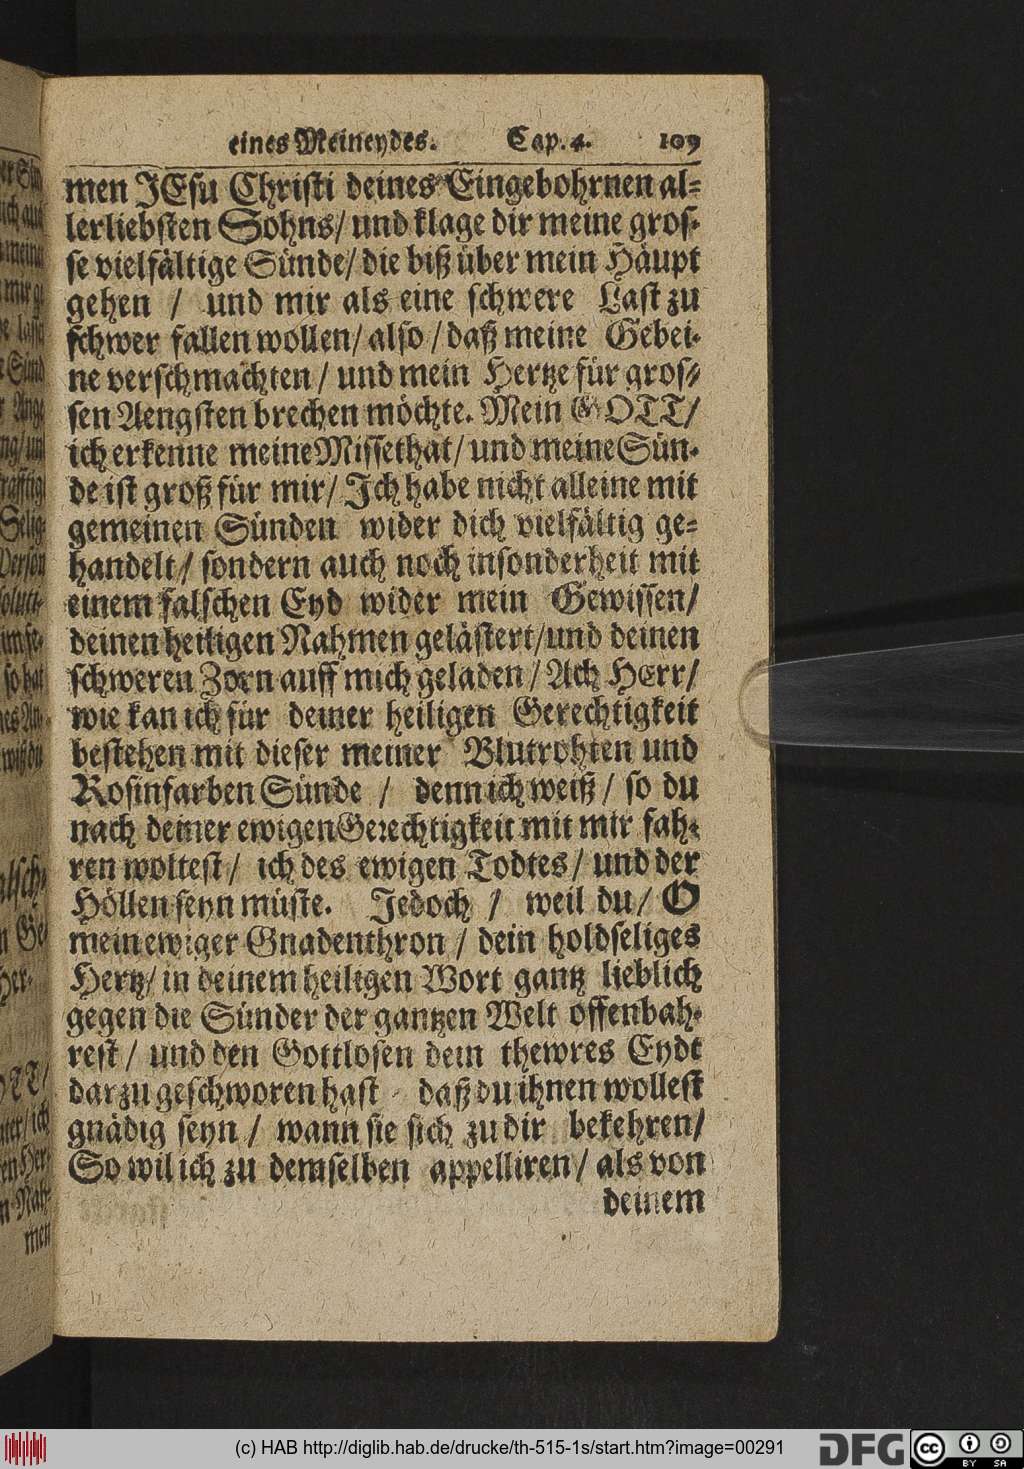 eines Meineydes. Cap. 4. 109
men JEsu Christi deines Eingebohrnen al-
lerliebsten Sohns/ und klage dir meine gros-
se vielfältige Sünde/ die biß über mein Häupt
gehen / und mir als eine schwere Last zu
schwer fallen wollen/ also / daß meine Gebei-
ne verschmachten / und mein Hertze für gros-
sen Aengsten brechen möchte. Mein GOTT/
ich erkenne meine Missethat/ und meine Sün-
de ist groß für mir/ Ich habe nicht alleine mit
gemeinen Sünden wider dich vielfältig ge-
handelt/ sondern auch noch insonderheit mit
einem falschen Eyd wider mein Gewissen/
deinen heiligen Nahmen gelästert/und deinen
schweren Zorn auff mich geladen / Ach HErr/
wie kan ich für deiner heiligen Gerechtigkeit
bestehen mit dieser meiner Blutrohten und
Rosinfarben Sünde / denn ich weiß / so du
nach deiner ewigen Gerechtigkeit mit mir fah-
ren woltest / ich des ewigen Todtes / und der
Höllen seyn müste. Jedoch / weil du / O
mein ewiger Gnadenthron / dein holdseliges
Hertz/ in deinem heiligen Wort gantz lieblich
gegen die Sünder der gantzen Welt offenbah-
rest / und den Gottlosen dein thewres Eydt
darzu geschworen hast / daß du ihnen wollest
gnädig seyn / wann sie sich zu dir bekehren/
So wil ich zu demselben appelliren / als von
deinem
(c) HAB http://diglib.hab.de/drucke/th-515-1s/start.htm?image=00291
DFG
cc BY SA